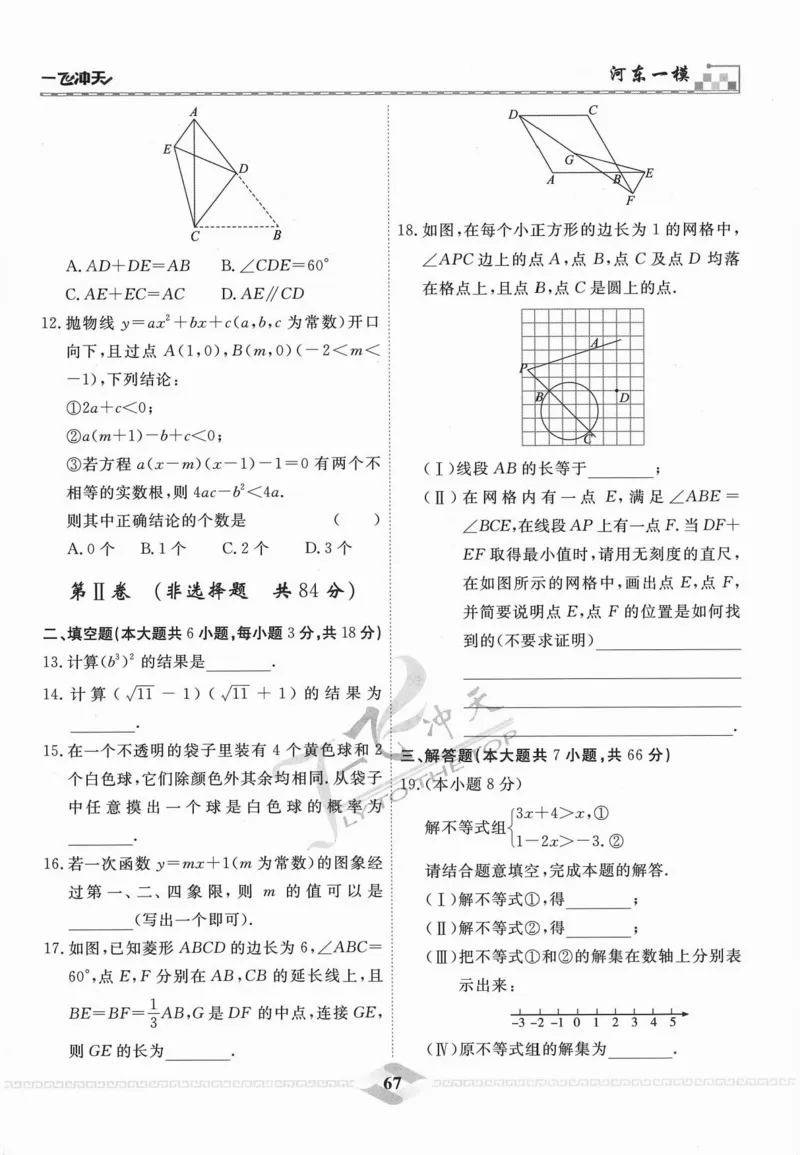 一飞冲天
河东一模
A
E
D
C
B
A.AD+DE=AB B.∠CDE=60°
C.AE+EC=AC D.AE∥CD
12.抛物线 y=ax²+bx+c(a,b,c 为常数)开口
向下,且过点 A(1,0),B(m,0)(-2<m<
-1),下列结论:
①2a+c<0;
②a(m+1)-b+c<0;
③若方程 a(x-m)(x-1)-1=0 有两个不
相等的实数根,则 4ac-b²<4a.
则其中正确结论的个数是 ( )
A.0 个 B.1 个 C.2 个 D.3 个
第Ⅱ卷 (非选择题 共 84 分)
二、填空题(本大题共 6 小题,每小题 3 分,共 18 分)
13.计算(b³)² 的结果是________.
14.计算(√11-1)(√11+1)的结果为
________.
15.在一个不透明的袋子里装有 4 个黄色球和 2
个白色球,它们除颜色外其余均相同.从袋子
中任意摸出一个球是白色球的概率为
________.
16.若一次函数 y=mx+1(m 为常数)的图象经
过第一、二、四象限,则 m 的值可以是
________(写出一个即可).
17.如图,已知菱形 ABCD 的边长为 6,∠ABC=
60°,点 E,F 分别在 AB,CB 的延长线上,且
BE=BF=1/3AB,G 是 DF 的中点,连接 GE,
则 GE 的长为________.
D
C
G
A
B
E
F
18.如图,在每个小正方形的边长为 1 的网格中,
∠APC 边上的点 A,点 B,点 C 及点 D 均落
在格点上,且点 B,点 C 是圆上的点.
A
P
B
D
C
(Ⅰ)线段 AB 的长等于________;
(Ⅱ)在网格内有一点 E,满足∠ABE=
∠BCE,在线段 AP 上有一点 F.当 DF+
EF 取得最小值时,请用无刻度的直尺,
在如图所示的网格中,画出点 E,点 F,
并简要说明点 E,点 F 的位置是如何找
到的(不要求证明)________
________.
三、解答题(本大题共 7 小题,共 66 分)
19.(本小题 8 分)
解不等式组{3x+4>x,①
1-2x>-3.②
请结合题意填空,完成本题的解答.
(Ⅰ)解不等式①,得________;
(Ⅱ)解不等式②,得________;
(Ⅲ)把不等式①和②的解集在数轴上分别表
示出来:
-3 -2 -1 0 1 2 3 4 5
(Ⅳ)原不等式组的解集为________.
飞冲天
FLY TO THE TOP
67